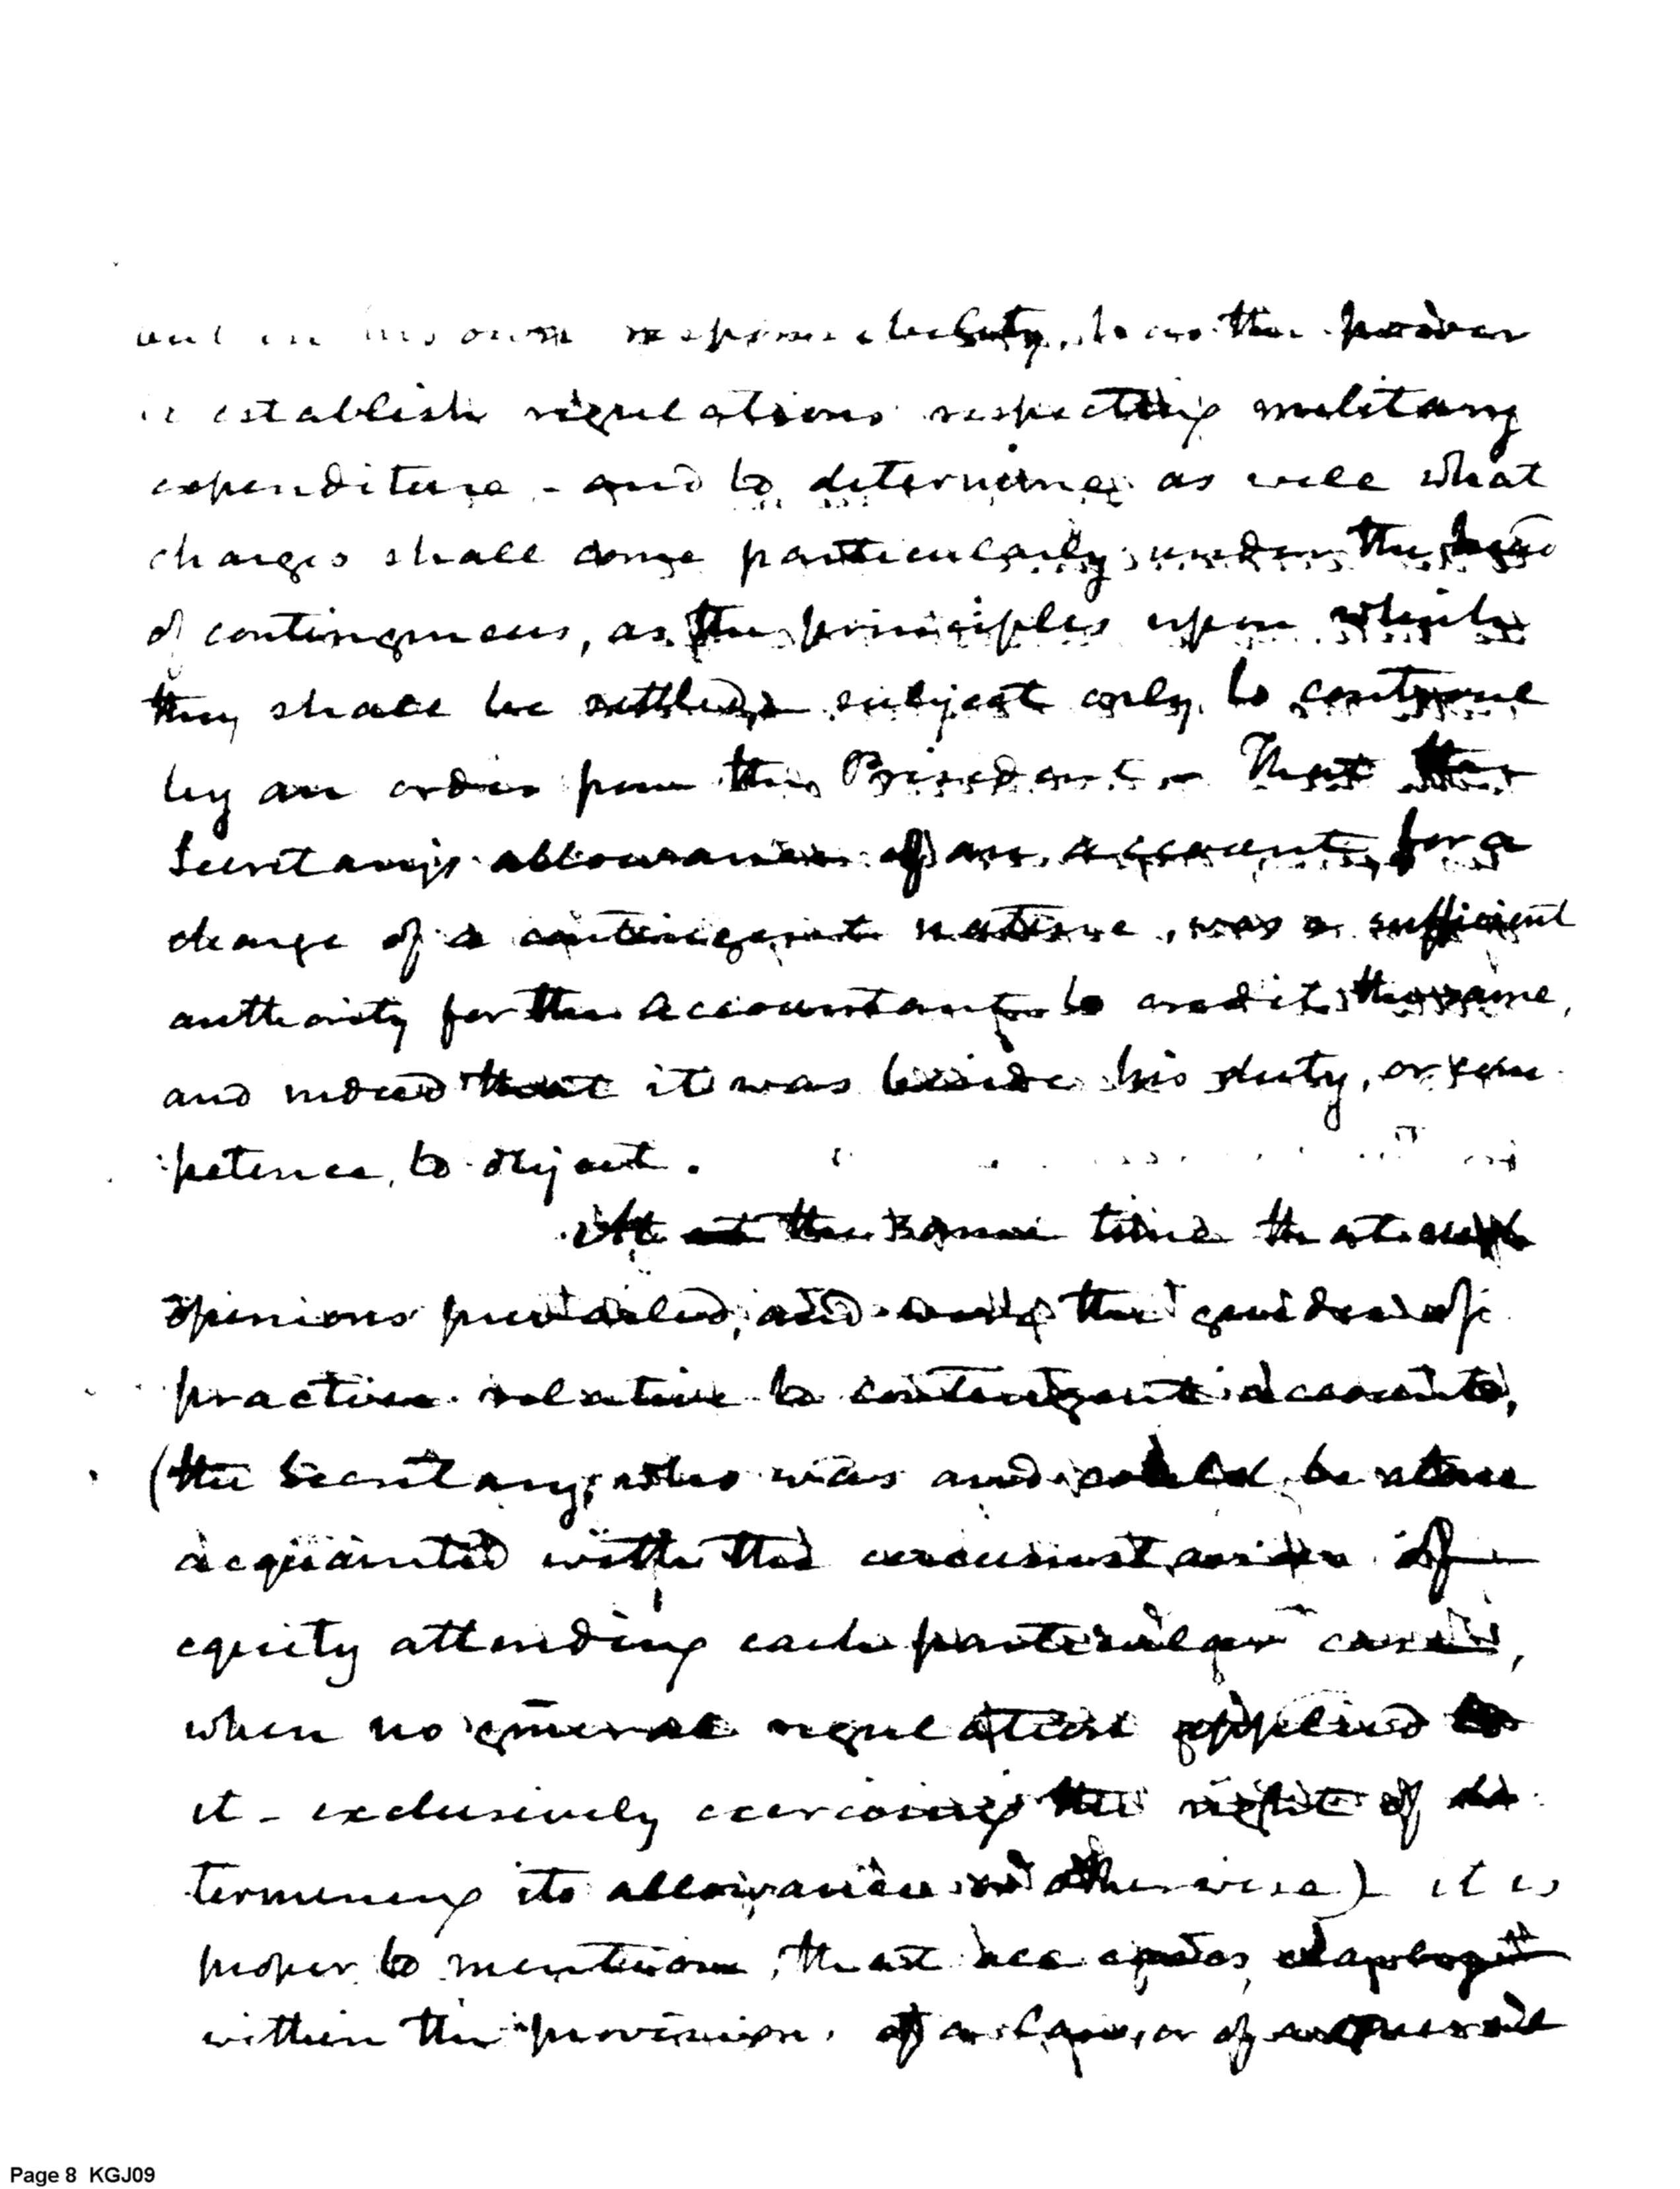 and in his own responsibility, has the power
to establish regulations respecting military
expenditure - and to determine as well what
charges shall come particularly under the head
of contingencies, as the principles upon which
they shall be settled, subject only to controul
by an order from the President - That the
Secretary's allowance of an account for a
charge of a contingent nature, was a sufficient
authority for the Accountant to credit the same,
and indeed that it was beside his duty, or com
petence, to object.
At the same time that such
opinions prevailed, and were the guides of
practice relative to contingent accounts,
(the Secretary, who was and could be alone
acquainted with the circumstances of
equity attending each particular case,
when no general regulation applied to
it - exclusively exercising the right of de
termining its allowance or otherwise) it is
proper to mention, that all
within the provision of a law, or of a